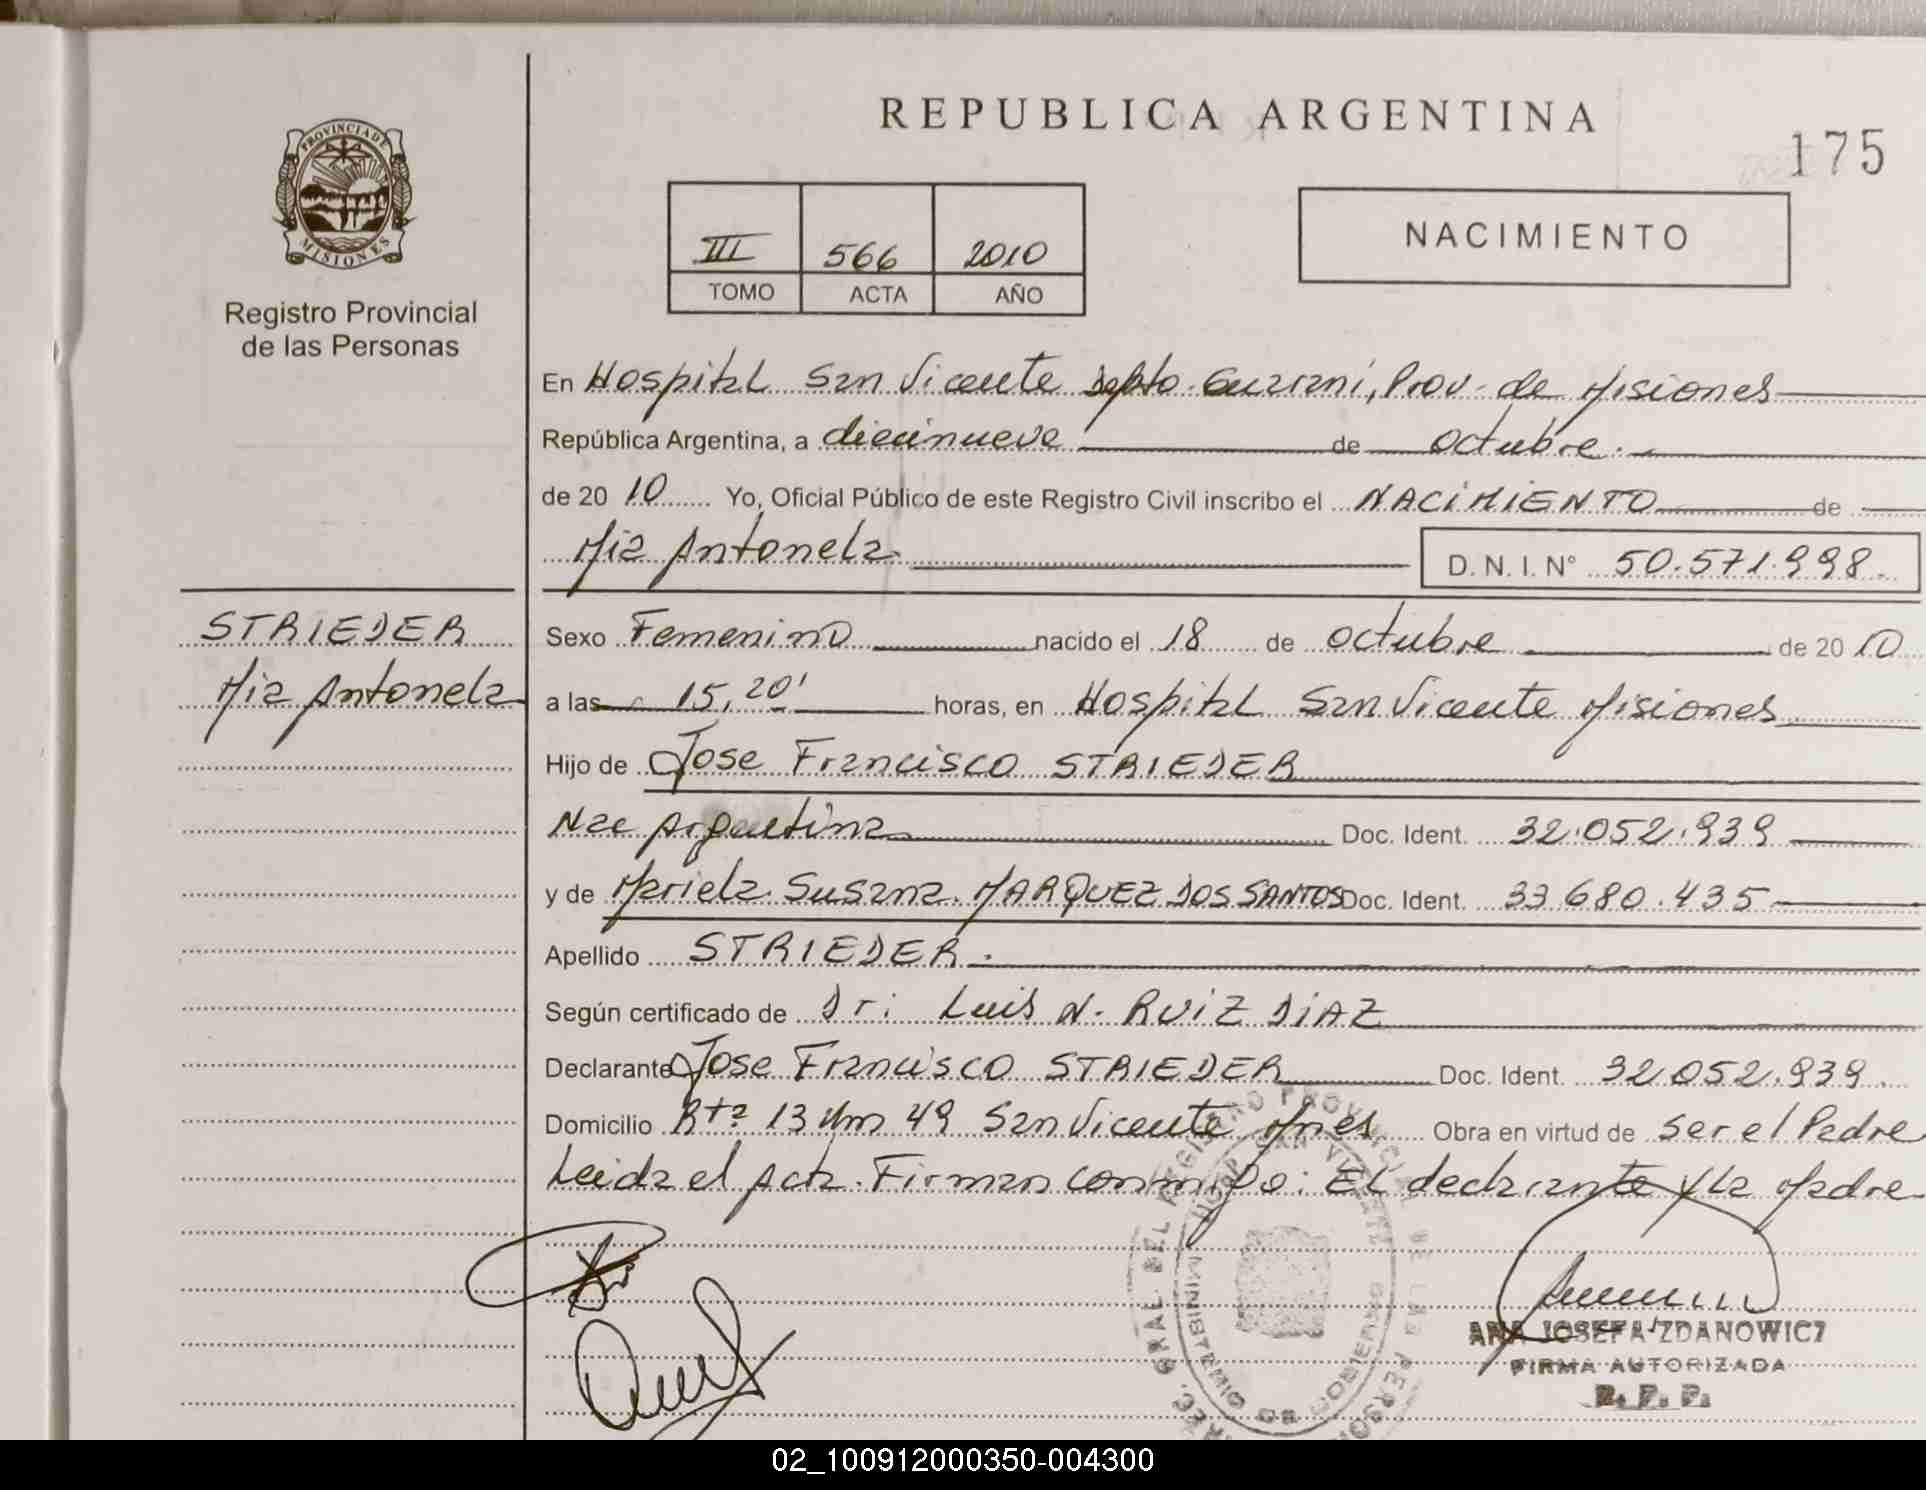 REPUBLICA ARGENTINA
175
PROVINCIA DE MISIONES
Registro Provincial
de las Personas
III 566 2010
TOMO ACTA AÑO
NACIMIENTO
En Hospital San Vicente Depto. Guaraní, Prov. de Misiones
República Argentina, a diecinueve de octubre.
de 20 10 Yo, Oficial Público de este Registro Civil inscribo el NACIMIENTO de
Mia Antonela D. N. I. N° 50.571.998.
STRIEDER
Mia Antonela
Sexo Femenino nacido el 18 de octubre de 20 10
a las 15,20' horas, en Hospital San Vicente Misiones
Hijo de Jose Francisco STRIEDER
Nac Argentina Doc. Ident. 32.052.939
y de Mariela Susana MARQUEZ DOS SANTOS Doc. Ident. 33.680.435
Apellido STRIEDER.
Según certificado de Dr: Luis N. RUIZ DIAZ
Declarante Jose Francisco STRIEDER Doc. Ident. 32.052.939.
Domicilio Rta 13 Km 49 San Vicente Mnes Obra en virtud de ser el Padre
Leida el Acta. Firman conmigo: El declarante y La Madre
ANA JOSEFA ZDANOWICZ
FIRMA AUTORIZADA
R. P. P.
02_100912000350-004300